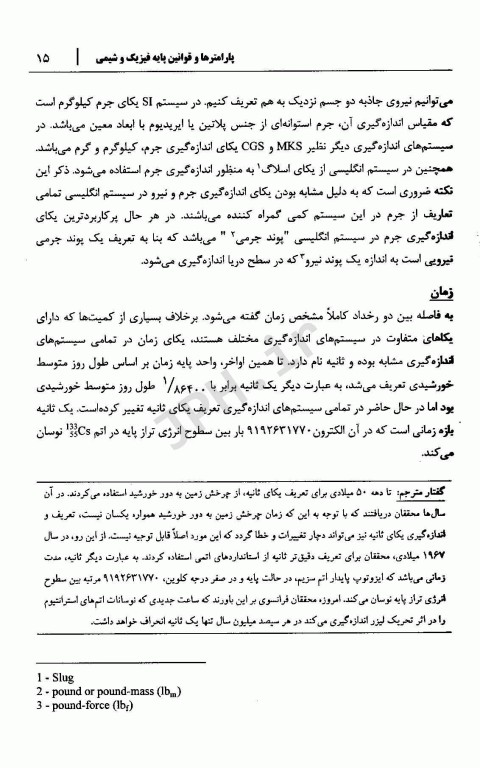 پارامترها و قوانین پایه فیزیک و شیمی | ۱۵
می‌توانیم نیروی جاذبه دو جسم نزدیک به هم تعریف کنیم. در سیستم SI یکای جرم کیلوگرم است
که مقیاس اندازه‌گیری آن، جرم استوانه‌ای از جنس پلاتین یا ایریدیوم با ابعاد معین می‌باشد. در
سیستم‌های اندازه‌گیری دیگر نظیر MKS و CGS یکای اندازه‌گیری جرم، کیلوگرم و گرم می‌باشد.
همچنین در سیستم انگلیسی از یکای اسلاگ۱ به منظور اندازه‌گیری جرم استفاده می‌شود. ذکر این
نکته ضروری است که به دلیل مشابه بودن یکای اندازه‌گیری جرم و نیرو در سیستم انگلیسی تمامی
تعاریف از جرم در این سیستم کمی گمراه کننده می‌باشند. در هر حال پرکاربردترین یکای
اندازه‌گیری جرم در سیستم انگلیسی "پوند جرمی۲ " می‌باشد که بنا به تعریف یک پوند جرمی
نیرویی است به اندازه یک پوند نیرو۳ که در سطح دریا اندازه‌گیری می‌شود.
زمان
به فاصله بین دو رخداد کاملاً مشخص زمان گفته می‌شود. برخلاف بسیاری از کمیت‌ها که دارای
یکاهای متفاوت در سیستم‌های اندازه‌گیری مختلف هستند، یکای زمان در تمامی سیستم‌های
اندازه‌گیری مشابه بوده و ثانیه نام دارد. تا همین اواخر، واحد پایه زمان بر اساس طول روز متوسط
خورشیدی تعریف می‌شد، به عبارت دیگر یک ثانیه برابر با ۱/۸۶۴۰۰ طول روز متوسط خورشیدی
بود اما در حال حاضر در تمامی سیستم‌های اندازه‌گیری تعریف یکای ثانیه تغییر کرده‌است. یک ثانیه
بازه زمانی است که در آن الکترون ۹۱۹۲۶۳۱۷۷۰ بار بین سطوح انرژی تراز پایه در اتم ¹³³₅₅Cs نوسان
می‌کند.
گفتار مترجم: تا دهه ۵۰ میلادی برای تعریف یکای ثانیه، از چرخش زمین به دور خورشید استفاده می‌کردند. در آن
سال‌ها محققان دریافتند که با توجه به این که زمان چرخش زمین به دور خورشید همواره یکسان نیست، تعریف و
اندازه‌گیری یکای ثانیه نیز می‌تواند دچار تغییرات و خطا گردد که این مورد اصلاً قابل توجیه نیست. از این رو، در سال
۱۹۶۷ میلادی، محققان برای تعریف دقیق‌تر ثانیه از استانداردهای اتمی استفاده کردند. به عبارت دیگر ثانیه، مدت
زمانی می‌باشد که ایزوتوپ پایدار اتم سزیم، در حالت پایه و در صفر درجه کلوین، ۹۱۹۲۶۳۱۷۷۰ مرتبه بین سطوح
انرژی تراز پایه نوسان می‌کند. امروزه محققان فرانسوی بر این باورند که ساعت جدیدی که نوسانات اتم‌های استرانتیوم
را در اثر تحریک لیزر اندازه‌گیری می‌کند در هر سیصد میلیون سال تنها یک ثانیه انحراف خواهد داشت.
1 - Slug
2 - pound or pound-mass (lbₘ)
3 - pound-force (lb_f)
JPH.ir